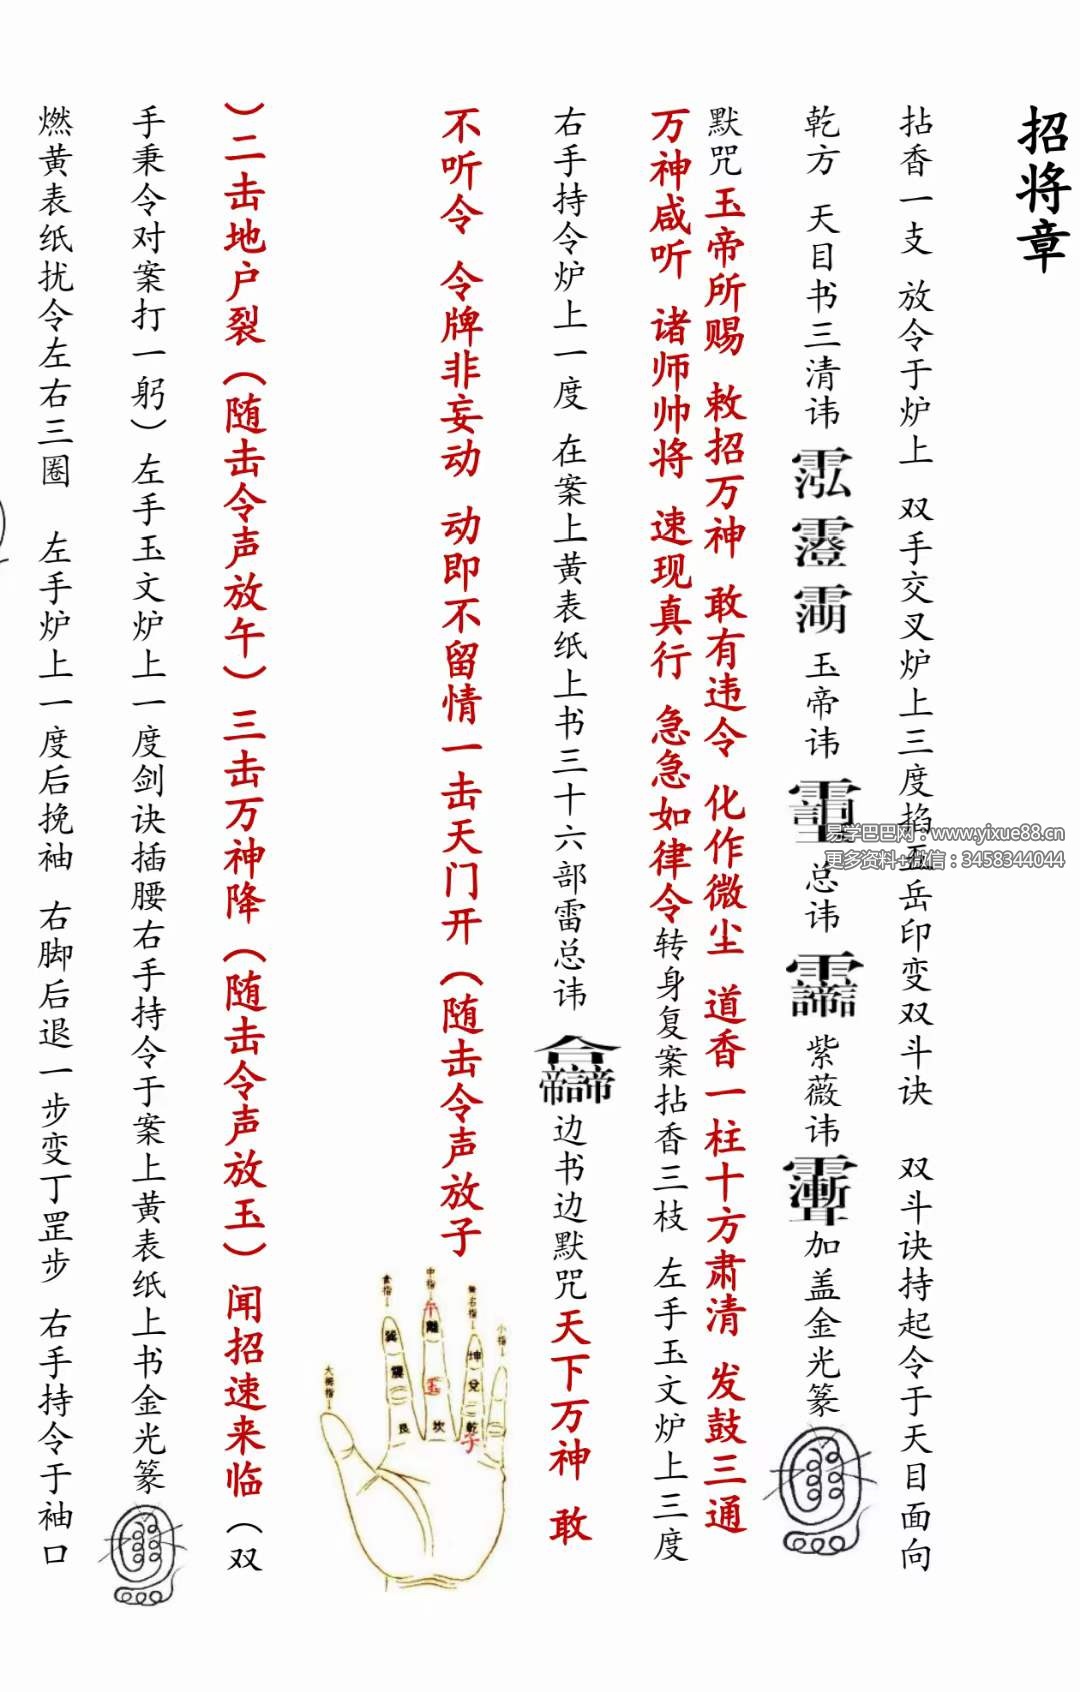 招将章
拈香一支 放令于炉上 双手交叉炉上三度掐五岳印变双斗诀 双斗诀持起令于天目面向
乾方 天目书三清讳 玉帝讳 总讳 紫薇讳 加盖金光篆
默咒玉帝所赐 敕招万神 敢有违令 化作微尘 道香一柱十方肃清 发鼓三通
万神咸听 诸师帅将 速现真行 急急如律令转身复案拈香三枝 左手玉文炉上三度
右手持令炉上一度 在案上黄表纸上书三十六部雷总讳 边书边默咒天下万神 敢
不听令 令牌非妄动 动即不留情一击天门开（随击令声放子
）二击地户裂（随击令声放午）三击万神降（随击令声放玉）闻招速来临（双
手秉令对案打一躬）左手玉文炉上一度剑诀插腰右手持令于案上黄表纸上书金光篆
燃黄表纸扰令左右三圈 左手炉上一度后挽袖 右脚后退一步变丁罡步 右手持令于袖口
大拇指
食指
中指
無名指
小指
巽
離
坤
震
玉
兌
艮
坎
乾
午
子
易学巴巴网：www.yixue88.cn
更多资料+微信：3458344044